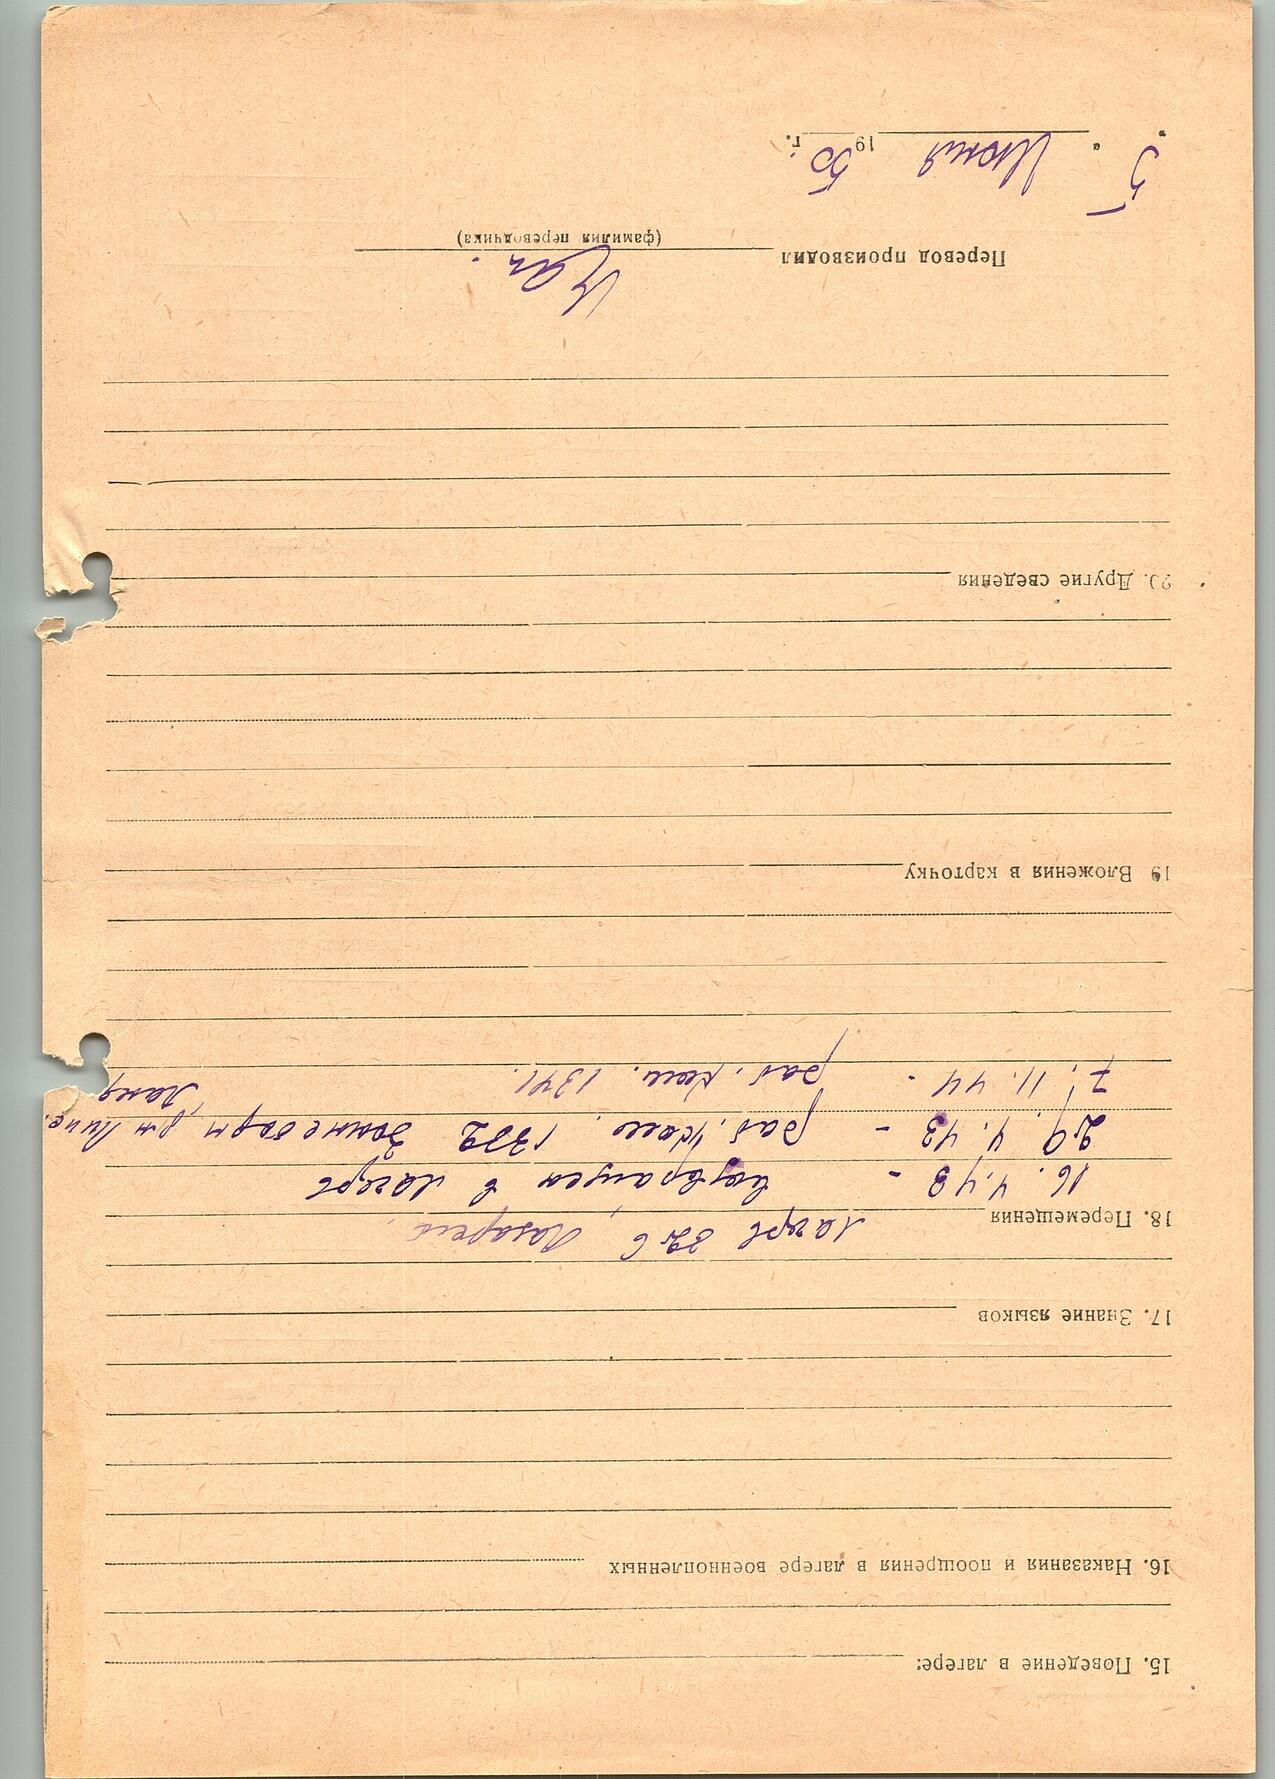 15. Поведение в лагере:
16. Наказания и поощрения в лагере военнопленных
17. Знание языков
18. Перемещения лагерь 326, Лазарет.
16. 4. 43 - возвращен в лагерь
29. 4. 43 - раб. ком. 1352
7. 11. 44 - раб. ком. 1341.
19 Вложения в карточку
20. Другие сведения
Перевод производил
(фамилия переводчика)
" 5 " Июня 1950 г.